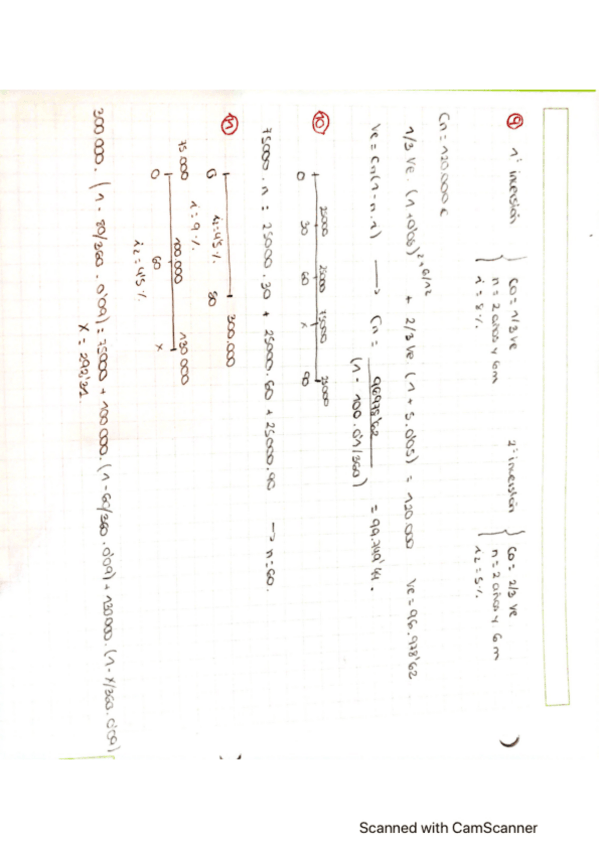 ⑨ 1ª inversión { C0 = 1/3 Ve
n = 2 años y 6m
i = 8%
2ª inversión { C0 = 2/3 Ve
n = 2 años y 6m
i2 = 5%
Cn = 120.000 €
1/3 Ve. (1+0'08)^2+6/12 + 2/3 Ve. (1+5.0'05) = 120.000 Ve = 96.978'62
Ve = Cn (1-n.i) → Cn = 96978'62 / (1-100.0'1/360) = 99.749'41.
⑩ 25000 25000 75000 25000
0 30 60 x 90
75000.n = 25000.30 + 25000.60 + 25000.90 → n = 60.
⑪ 300.000
0 80
i2 = 4'5%
i = 9%
75000 100.000 130000
0 60 x
i2 = 4'5%
300.000. (1-80/360.0'09) = 75000 + 100.000. (1-60/360.0'09) + 130000. (1-x/360.0'09)
x = 292'31.
Scanned with CamScanner